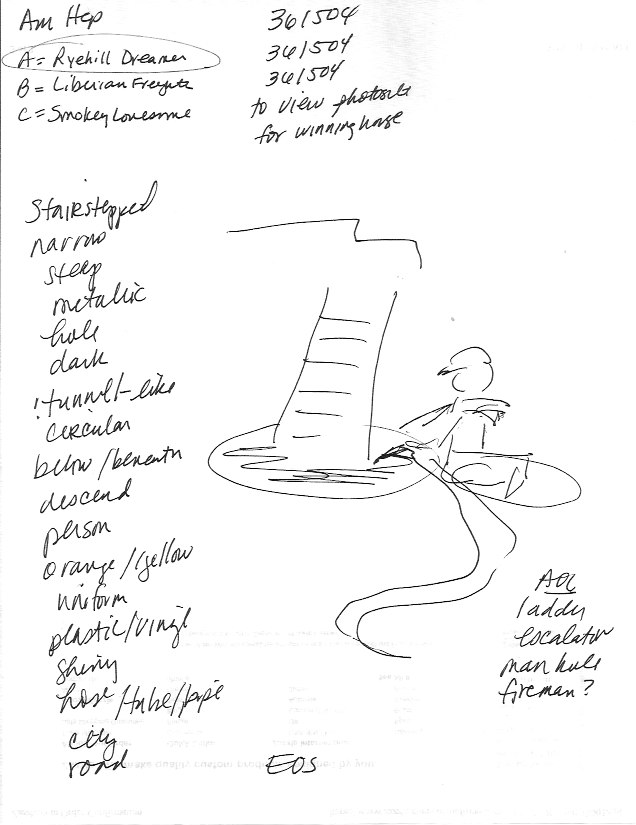 Am Hcp
A = Ryehill Dreamer
B = Liberian Freighter
C = Smokey Lonesome
361504
361504
361504
to view photosite
for winning horse
Stairstepped
narrow
steep
metallic
hole
dark
tunnel-like
circular
below/beneath
descend
person
orange/yellow
uniform
plastic/vinyl
shiny
hose/tube/pipe
city
road
AOL
ladder
escalator
man hole
fireman?
EOS